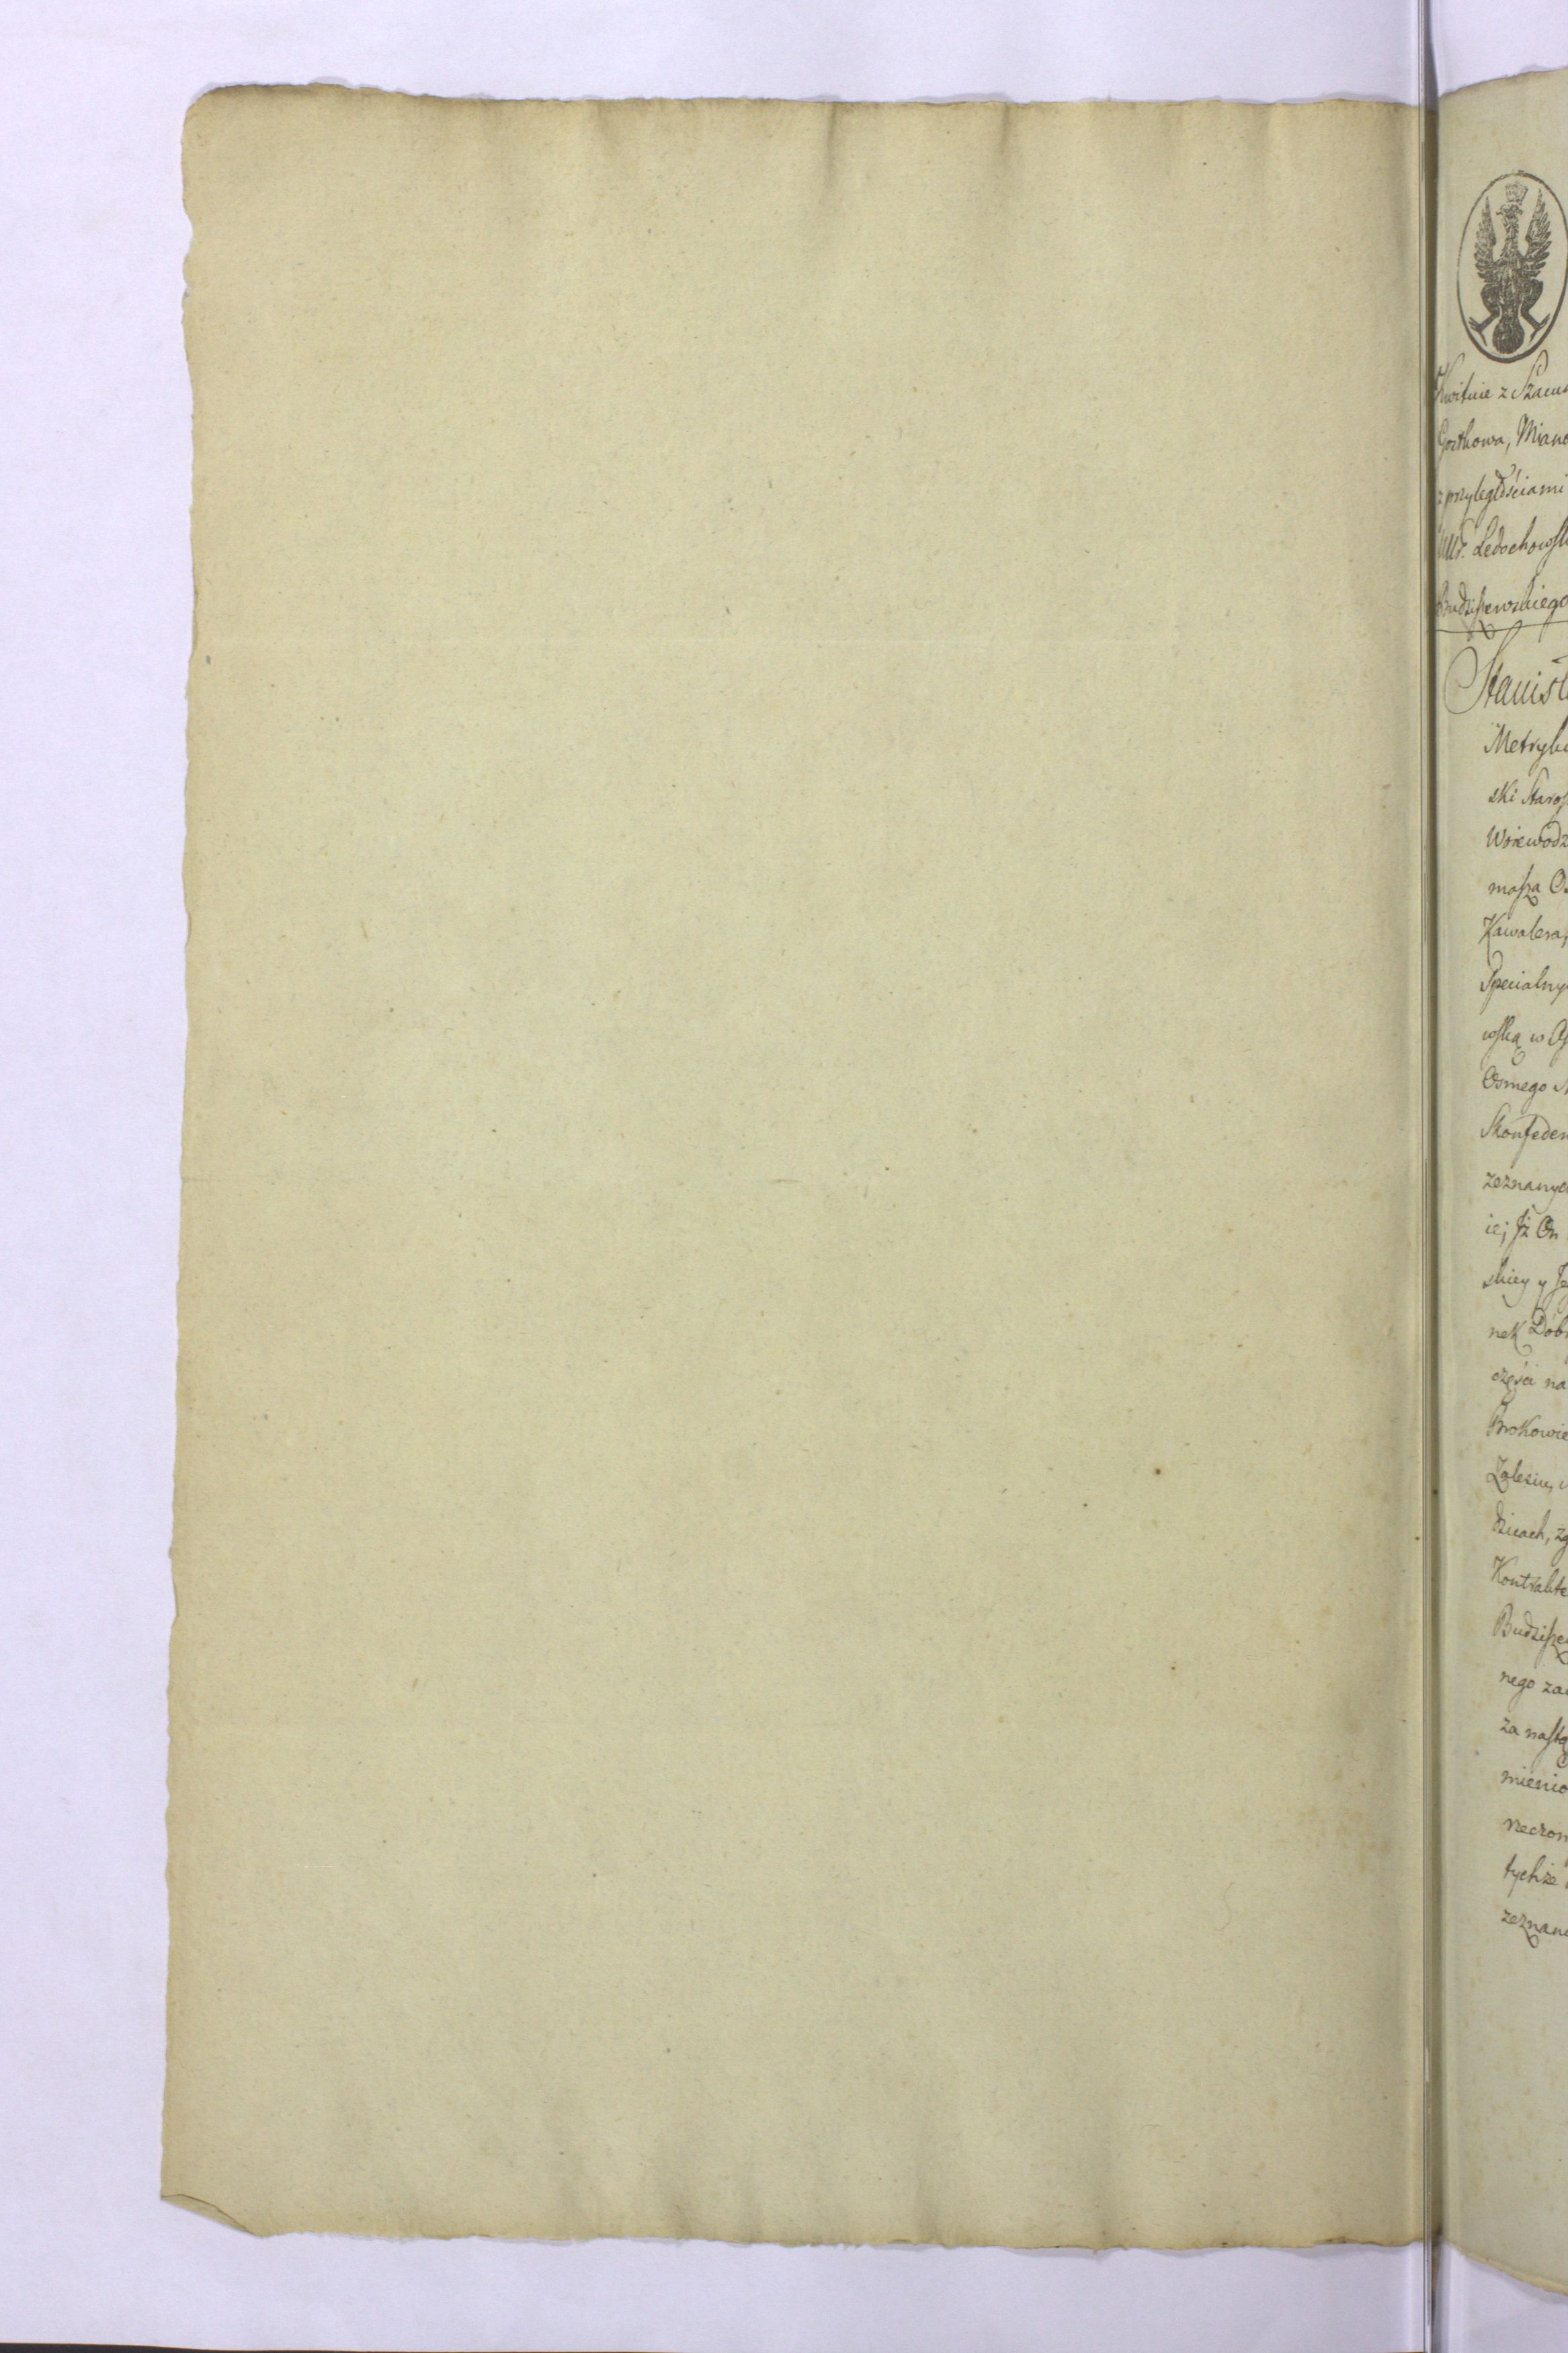 Kwituie z Szacun
Gostkowa, Miano
z przyległościami
Ur. Ledochowsk
Budziszewskiego
Stanisł
Metryk
ski Staros
Woiewodz
masza O
Kawalera,
Specialny
wską w
Osmego
Skonfeder
zeznanych
ie; Jż On
skiey y Je
nek Dobr
części na
Brokowie
Zalesiu,
dzicach, zg
Kontrakte
Budzisze
nego za
za nastą
mienio
rzeczon
tychże
zeznane